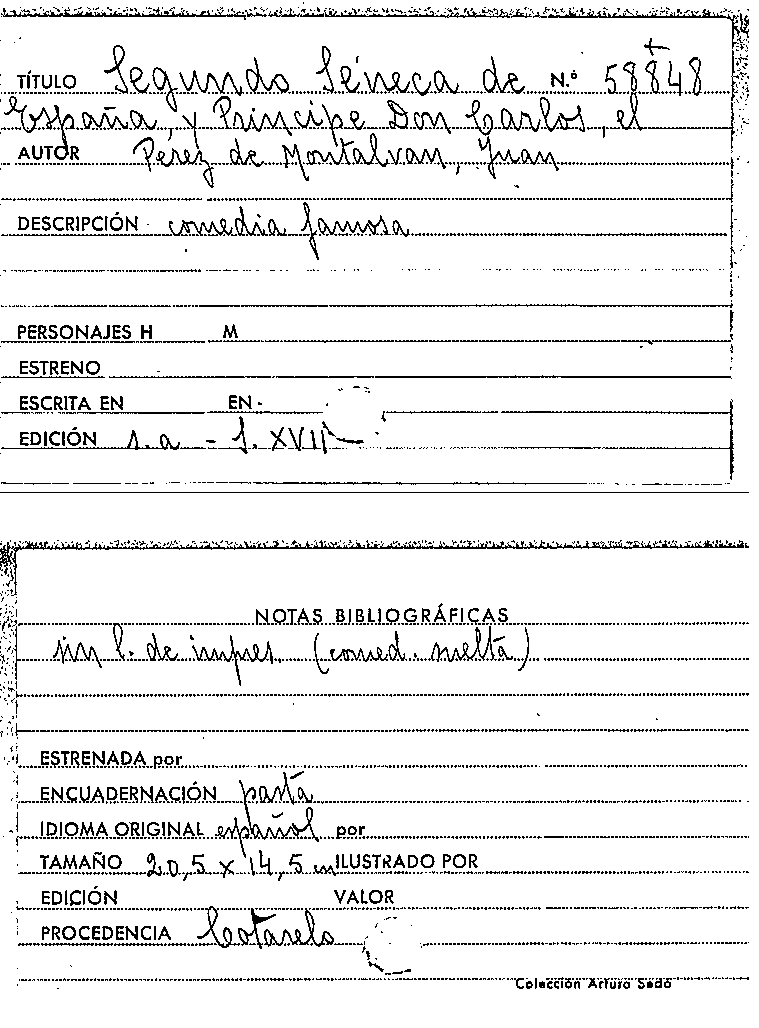 TÍTULO Segundo Séneca de N.º 58848
España, y Príncipe Don Carlos, el
AUTOR Perez de Montalvan, Juan
DESCRIPCIÓN comedia famosa
PERSONAJES H M
ESTRENO
ESCRITA EN EN
EDICIÓN s.a - S. XVII
NOTAS BIBLIOGRÁFICAS
sin l. de impres. (comed. suelta)
ESTRENADA por
ENCUADERNACIÓN pasta
IDIOMA ORIGINAL español por
TAMAÑO 20,5 x 14,5 cm ILUSTRADO POR
EDICIÓN VALOR
PROCEDENCIA Cotarelo
Colección Arturo Sedó